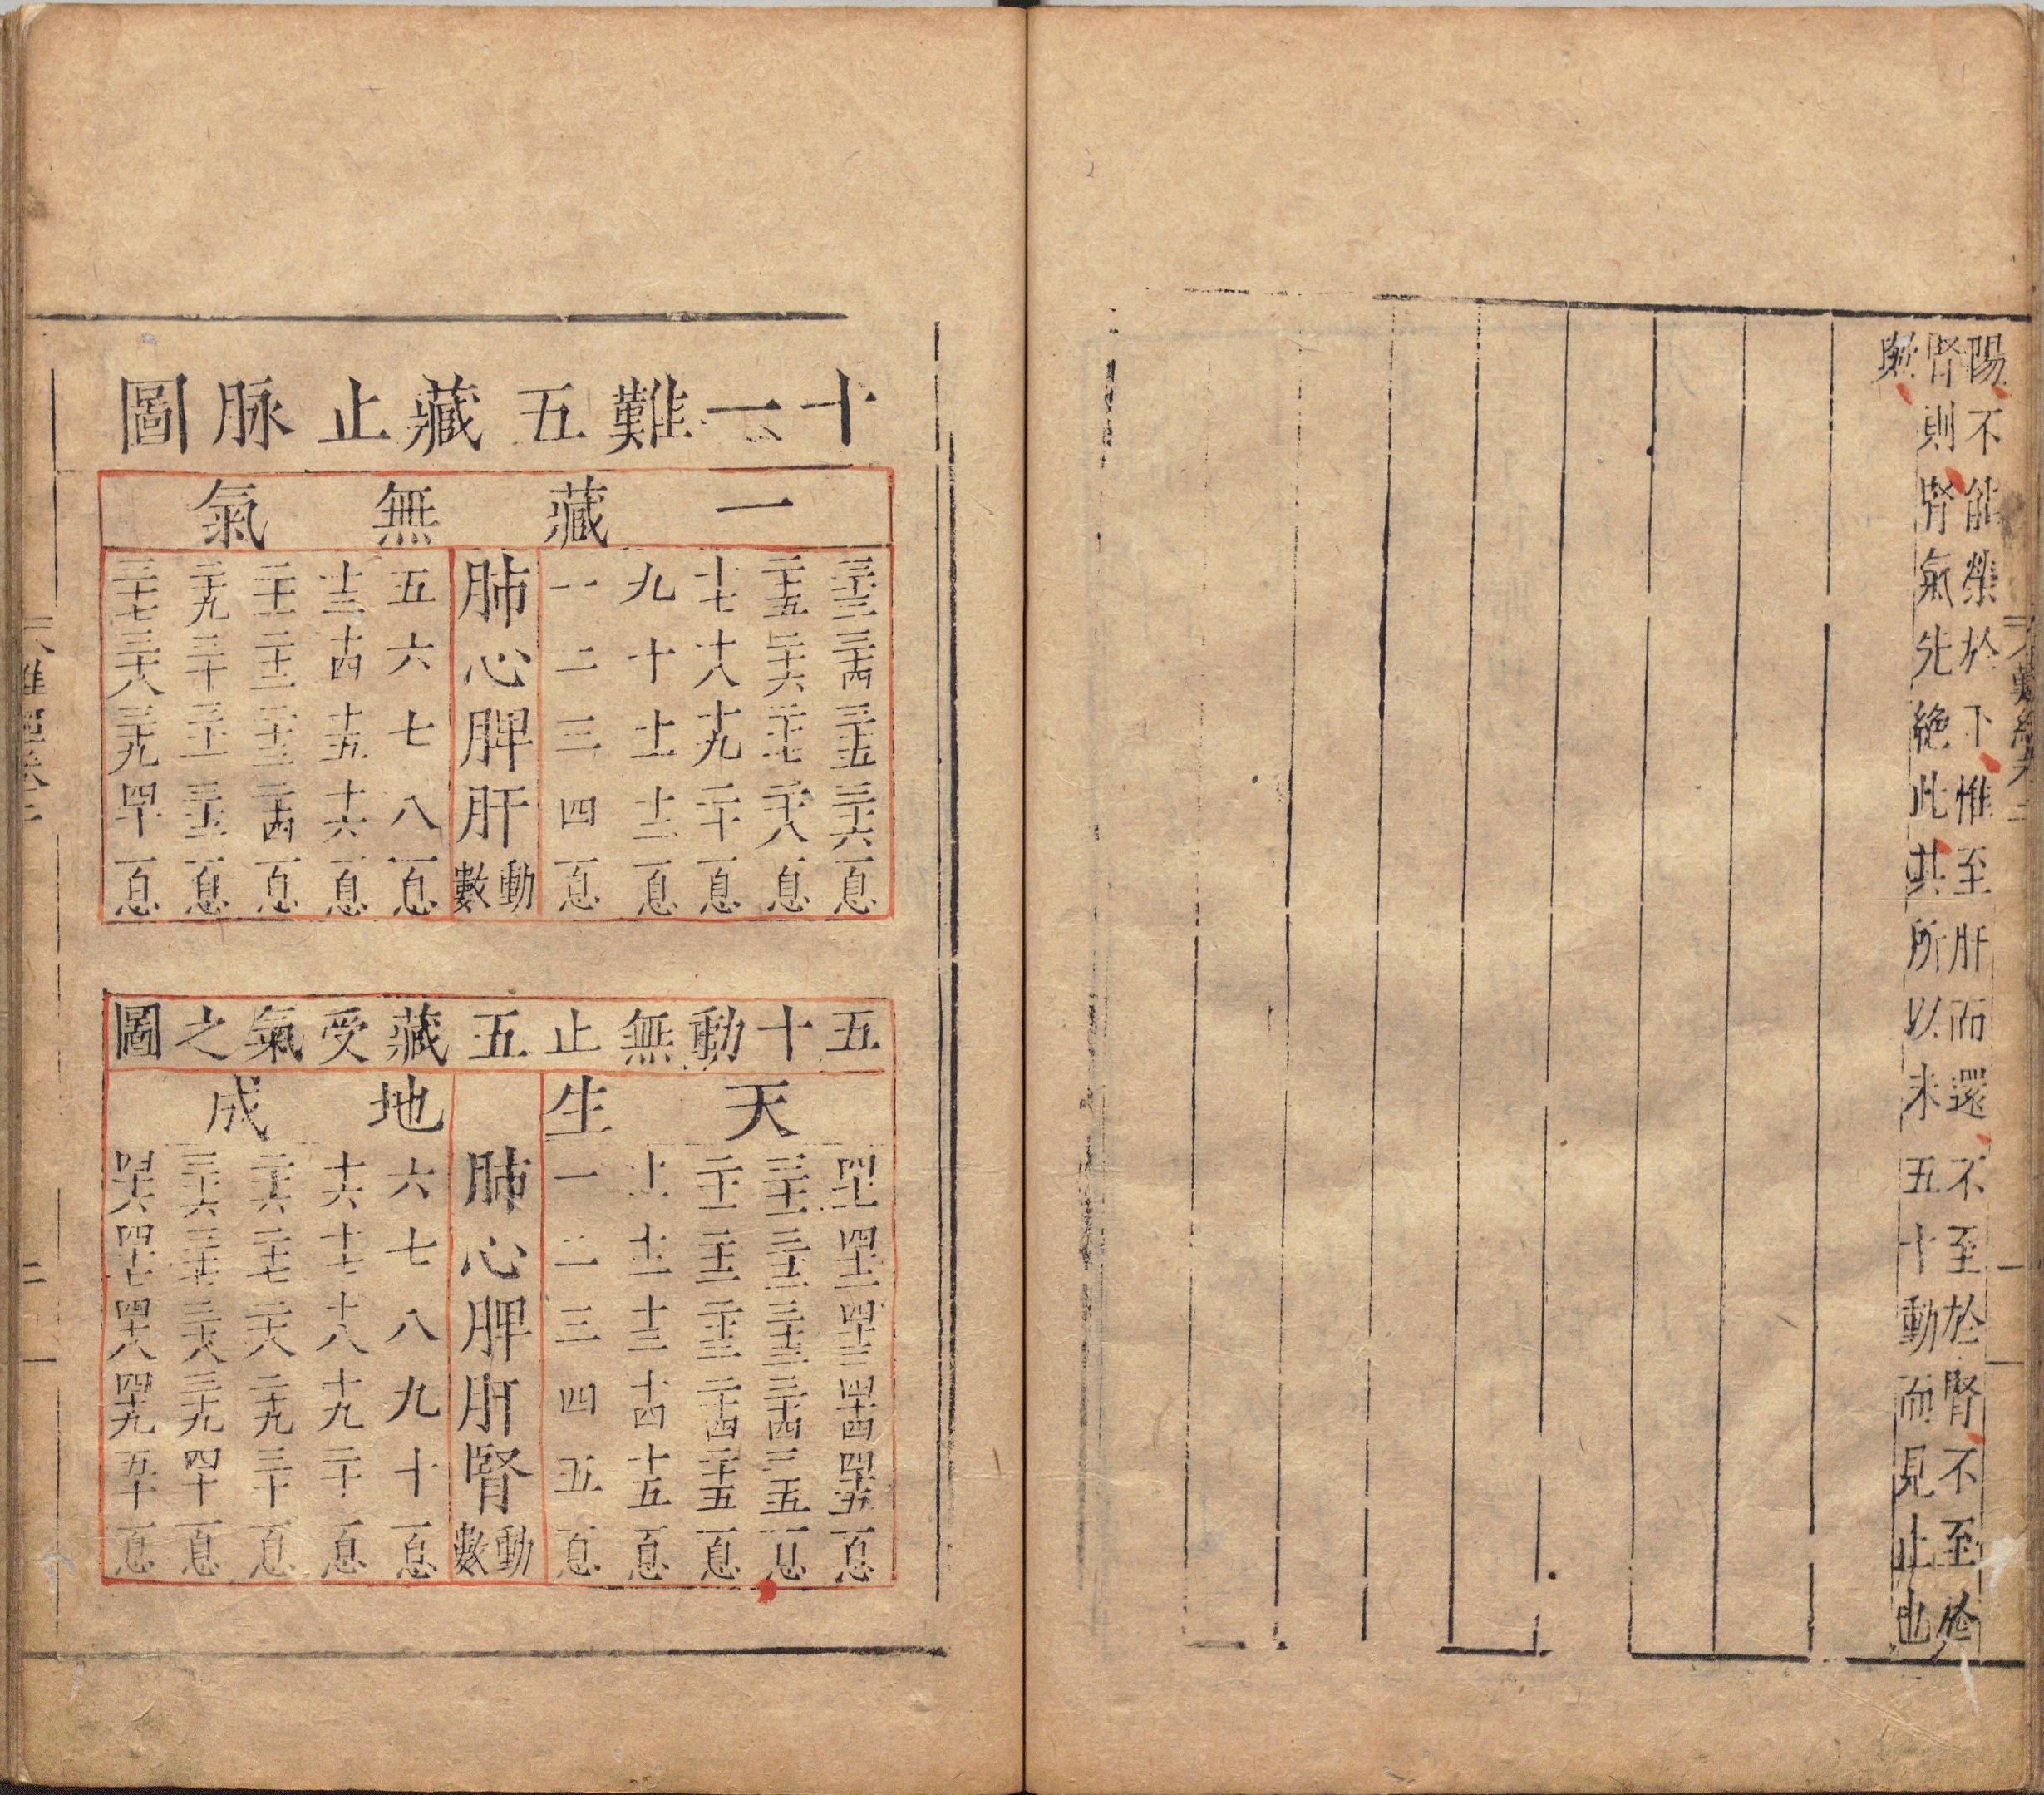 陽不能榮於下惟至肝而還不至於腎不至於
腎則腎氣先絶此其所以未五十動而見止也
歟
十一難五藏止脉圖
一藏無氣
三十三三十四三十五三十六一息
二十五二十六二十七二十八一息
十七十八十九二十一息
九十十一十二一息
一二三四一息
肺心脾肝動數
五六七八一息
十三十四十五十六一息
二十一二十二二十三二十四一息
二十九三十三十一三十二一息
三十七三十八三十九四十一息
五十動無止五藏受氣之圖
天生地成
四十一四十二四十三四十四四十五一息
三十一三十二三十三三十四三十五一息
二十一二十二二十三二十四二十五一息
十一十二十三十四十五一息
一二三四五一息
肺心脾肝腎動數
六七八九十一息
十六十七十八十九二十一息
二十六二十七二十八二十九三十一息
三十六三十七三十八三十九四十一息
四十六四十七四十八四十九五十一息